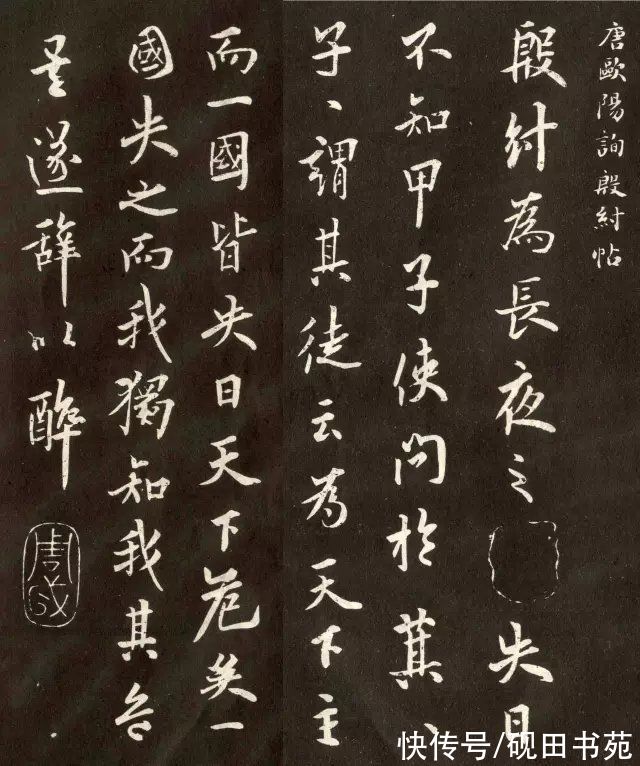 唐歐陽詢殷紂帖
殷紂為長夜之失日
不知甲子使問於萁、
子、謂其徒云為天下主
而一國皆失日天下危矣一
國失之而我獨知我其危
矣遂辞以醉
快传号/砚田书苑